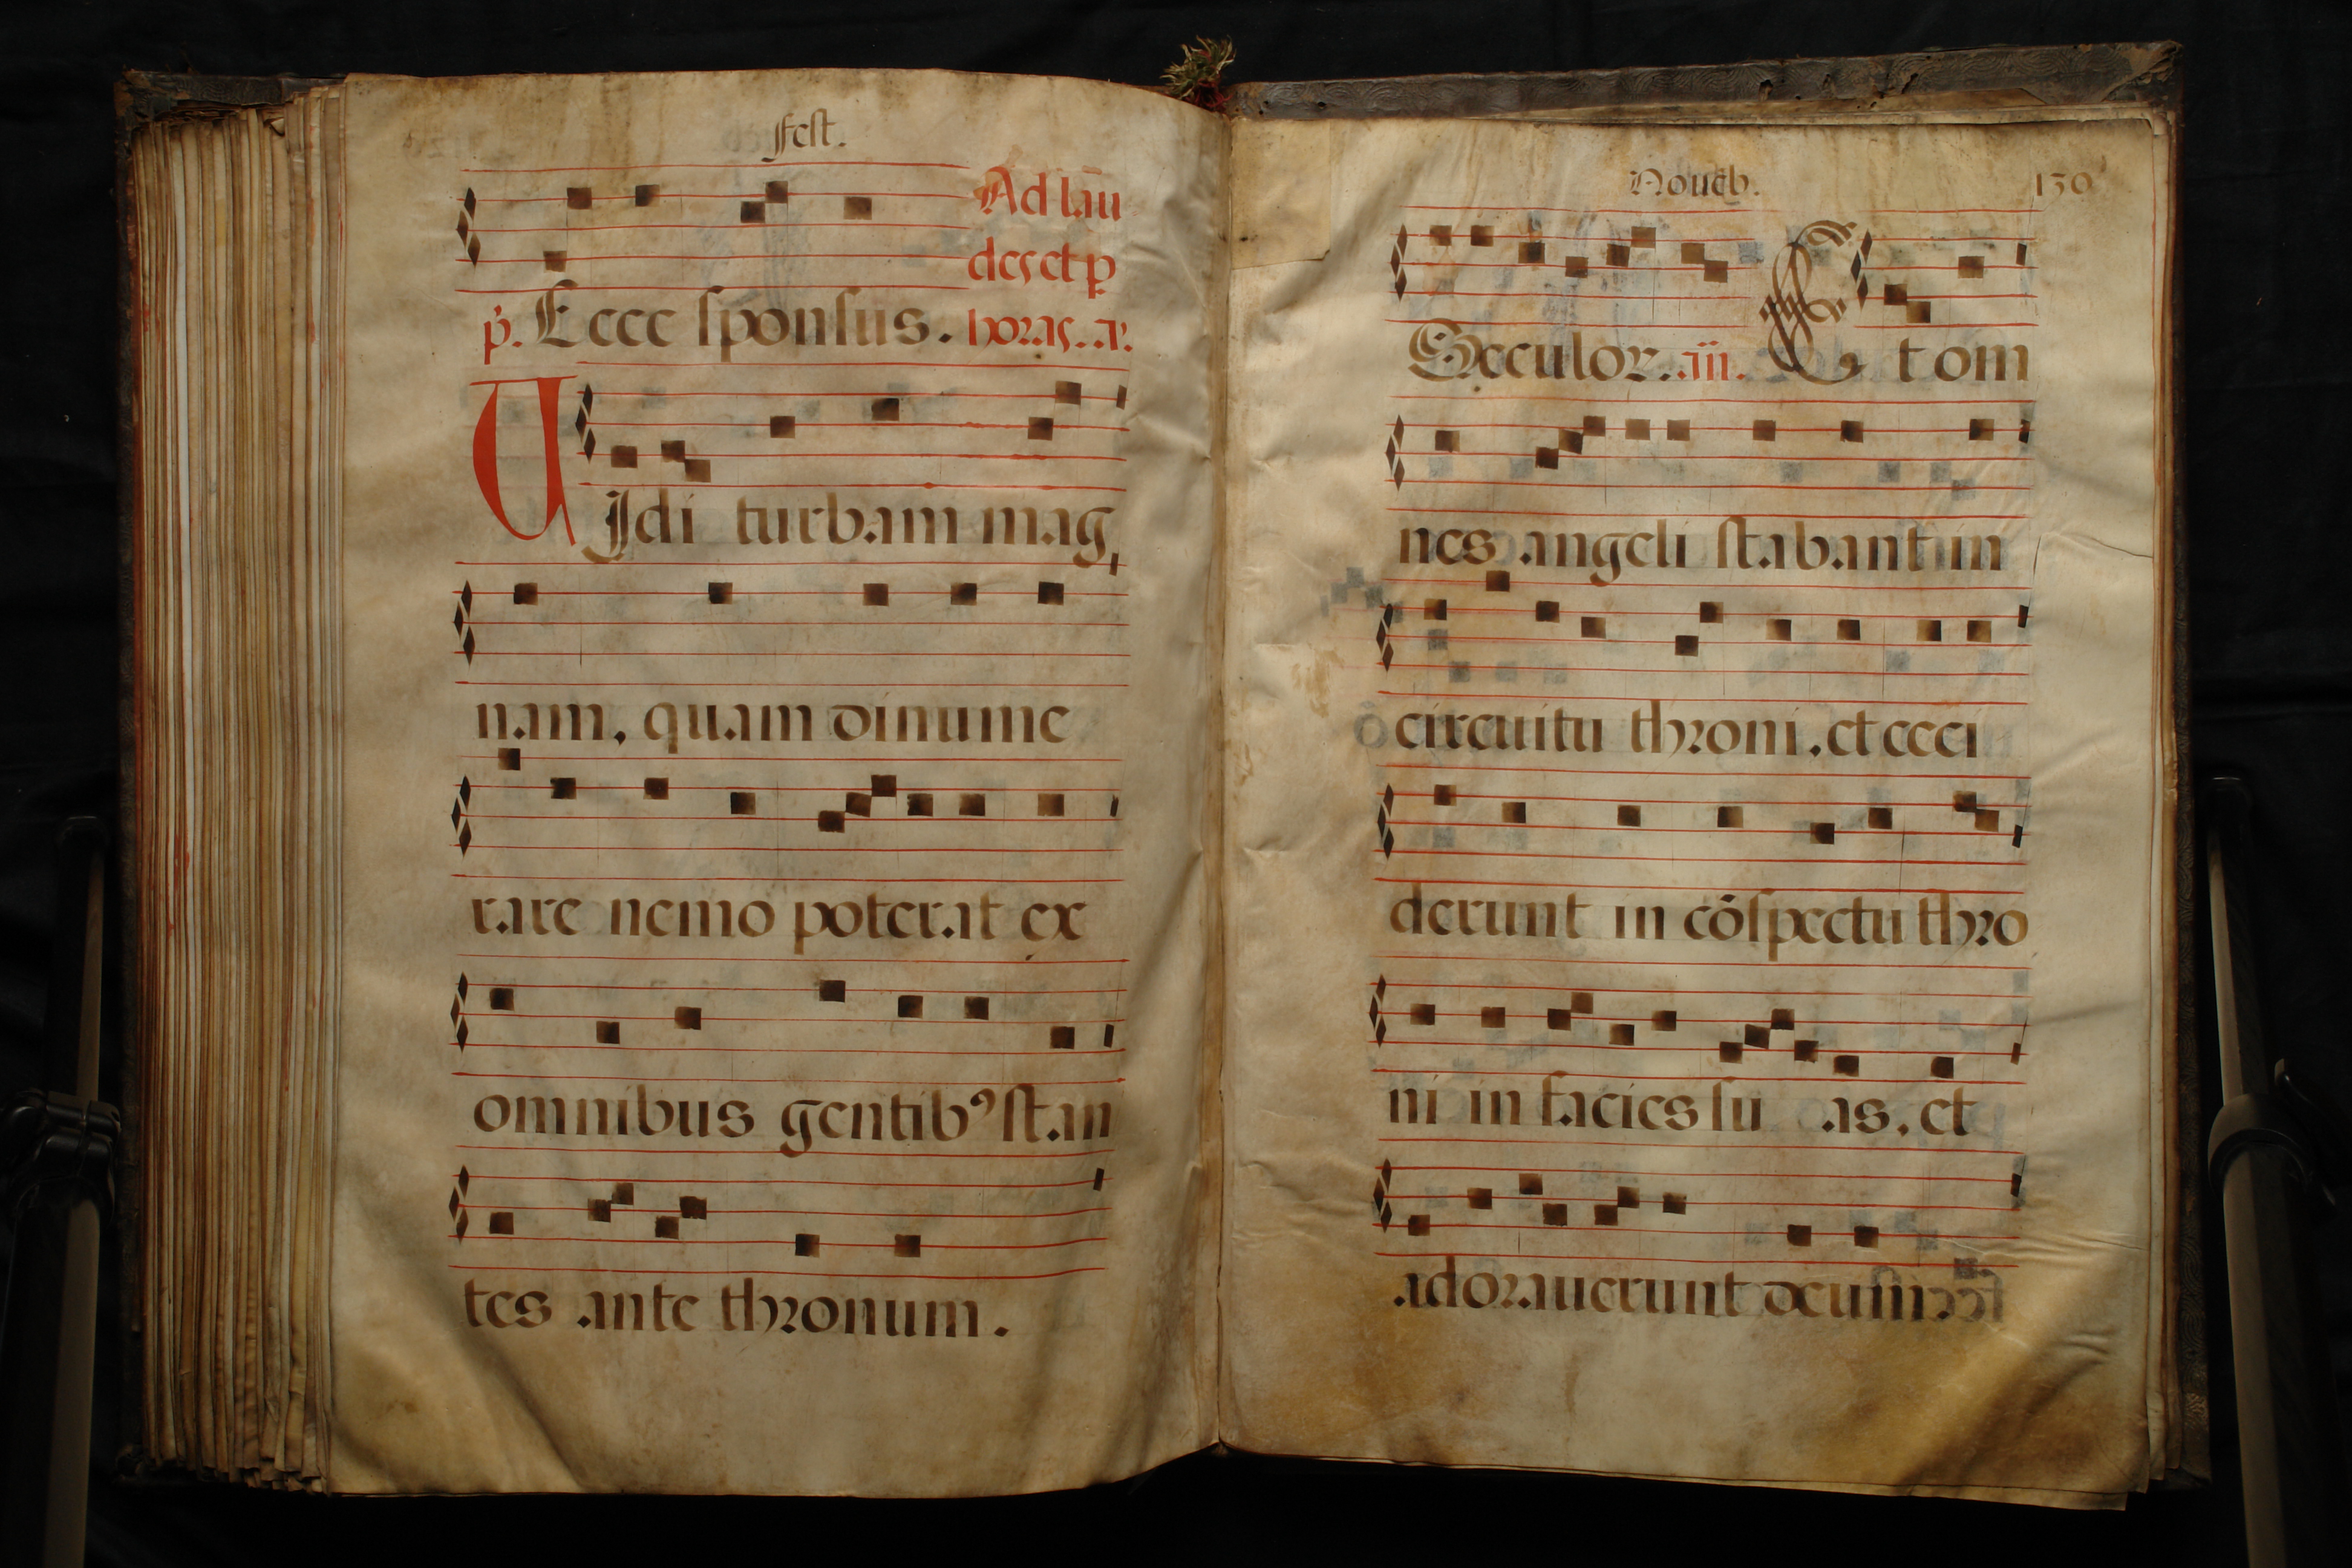 fest.
Ad lau
des et p̱
p̃. Ecce sponsus. horas. a.
VJdi turbam mag
nam, quam dinume
rare nemo poterat ex
omnibus gentibꝰ stan
tes ante thronum.
Nouẽb. 130
Sæculor. añ. Et om
nes angeli stabant in
circuitu throni, et ceci
derunt in cõspectu thro
ni in facies su as, et
adorauerunt deum